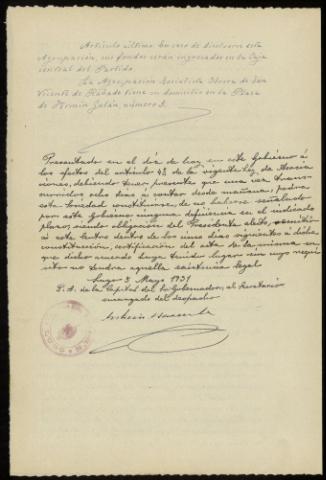 Artículo último En caso de disolverse esta
Agrupación, sus fondos serán ingresados en la Caja
central del Partido.
La Agrupación Socialista Obrera de San
Vicente de Rábade tiene su domicilio en la Plaza
de Fermín Galán, número 3.
Presentado en el día de hoy en este Gobierno á
los efectos del artículo 4º de la vigente Ley de Asocia
ciones, debiendo tener presente que una vez trans-
curridos ocho días á contar desde mañana, podrá
esta Sociedad constituirse, de no haberse señalado
por este Gobierno ninguna deficiencia en el indicado
plazo, siendo obligación del Presidente electo, remitir
á este Centro dentro de los cinco días siguientes á dicha
constitución, certificación del acta de la misma en
que dicho acuerdo haya tenido lugar sin cuyo requi
sito no tendrá aquella existencia legal
Lugo 3 Mayo 1931
P. A. de la Capital del Sr Gobernador, el Secretario
encargado del despacho
LUGO